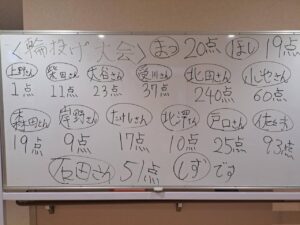 〈輪投げ大会〉 まつ 20点 ほし 19点
上野さん 柴田さん 大谷さん 及川さん 北田さん 小池さん
1点 11点 23点 37点 240点 60点
森田さん 岸野さん たけしさん 北澤さん 戸口さん 佐久さん
19点 9点 17点 10点 25点 93点
石田さん 51点 しず です